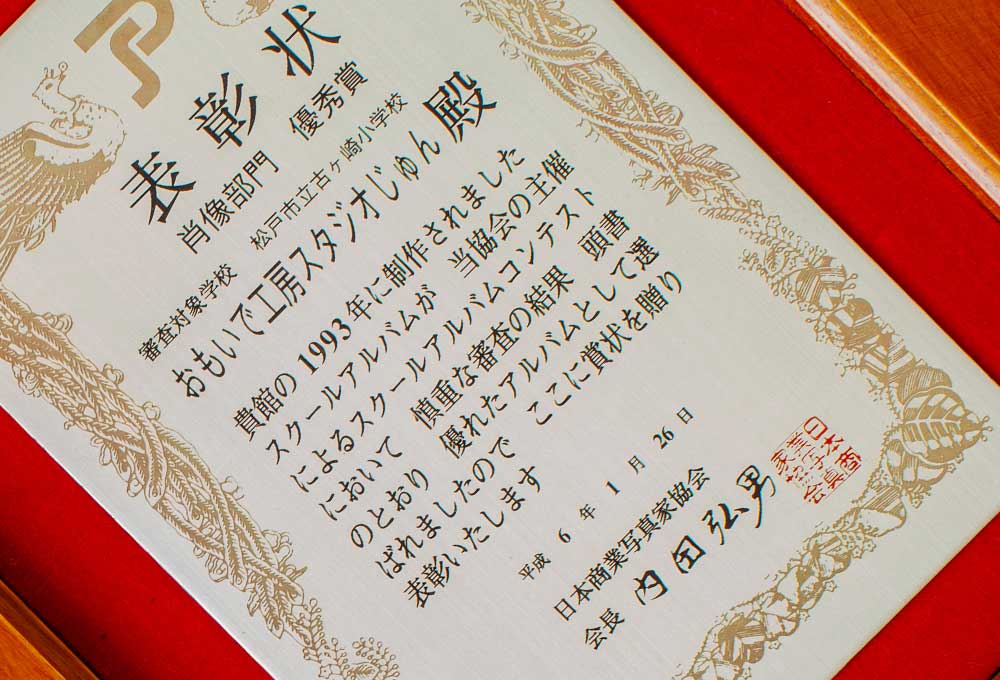 表彰状
肖像部門　優秀賞
審査対象学校　松戸市立古ヶ崎小学校
おもいで工房スタジオじゅん殿
貴館の1993年に制作されました
スクールアルバムが　当協会の主催
によるスクールアルバムコンテスト
において　慎重な審査の結果　頭書
のとおり　優れたアルバムとして選
ばれましたので　ここに賞状を贈り
表彰いたします
平成6年1月26日
日本商業写真家協会
会長　内田弘男